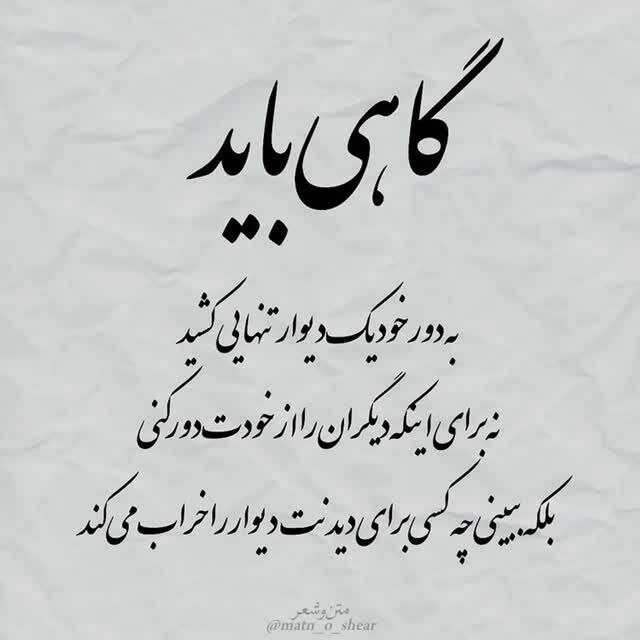 گاهی باید
به دور خود یک دیوار تنهایی کشید
نه برای اینکه دیگران را از خودت دور کنی
بلکه ببینی چه کسی برای دیدنت دیوار را خراب می کند
متن و شعر
@matn_o_shear